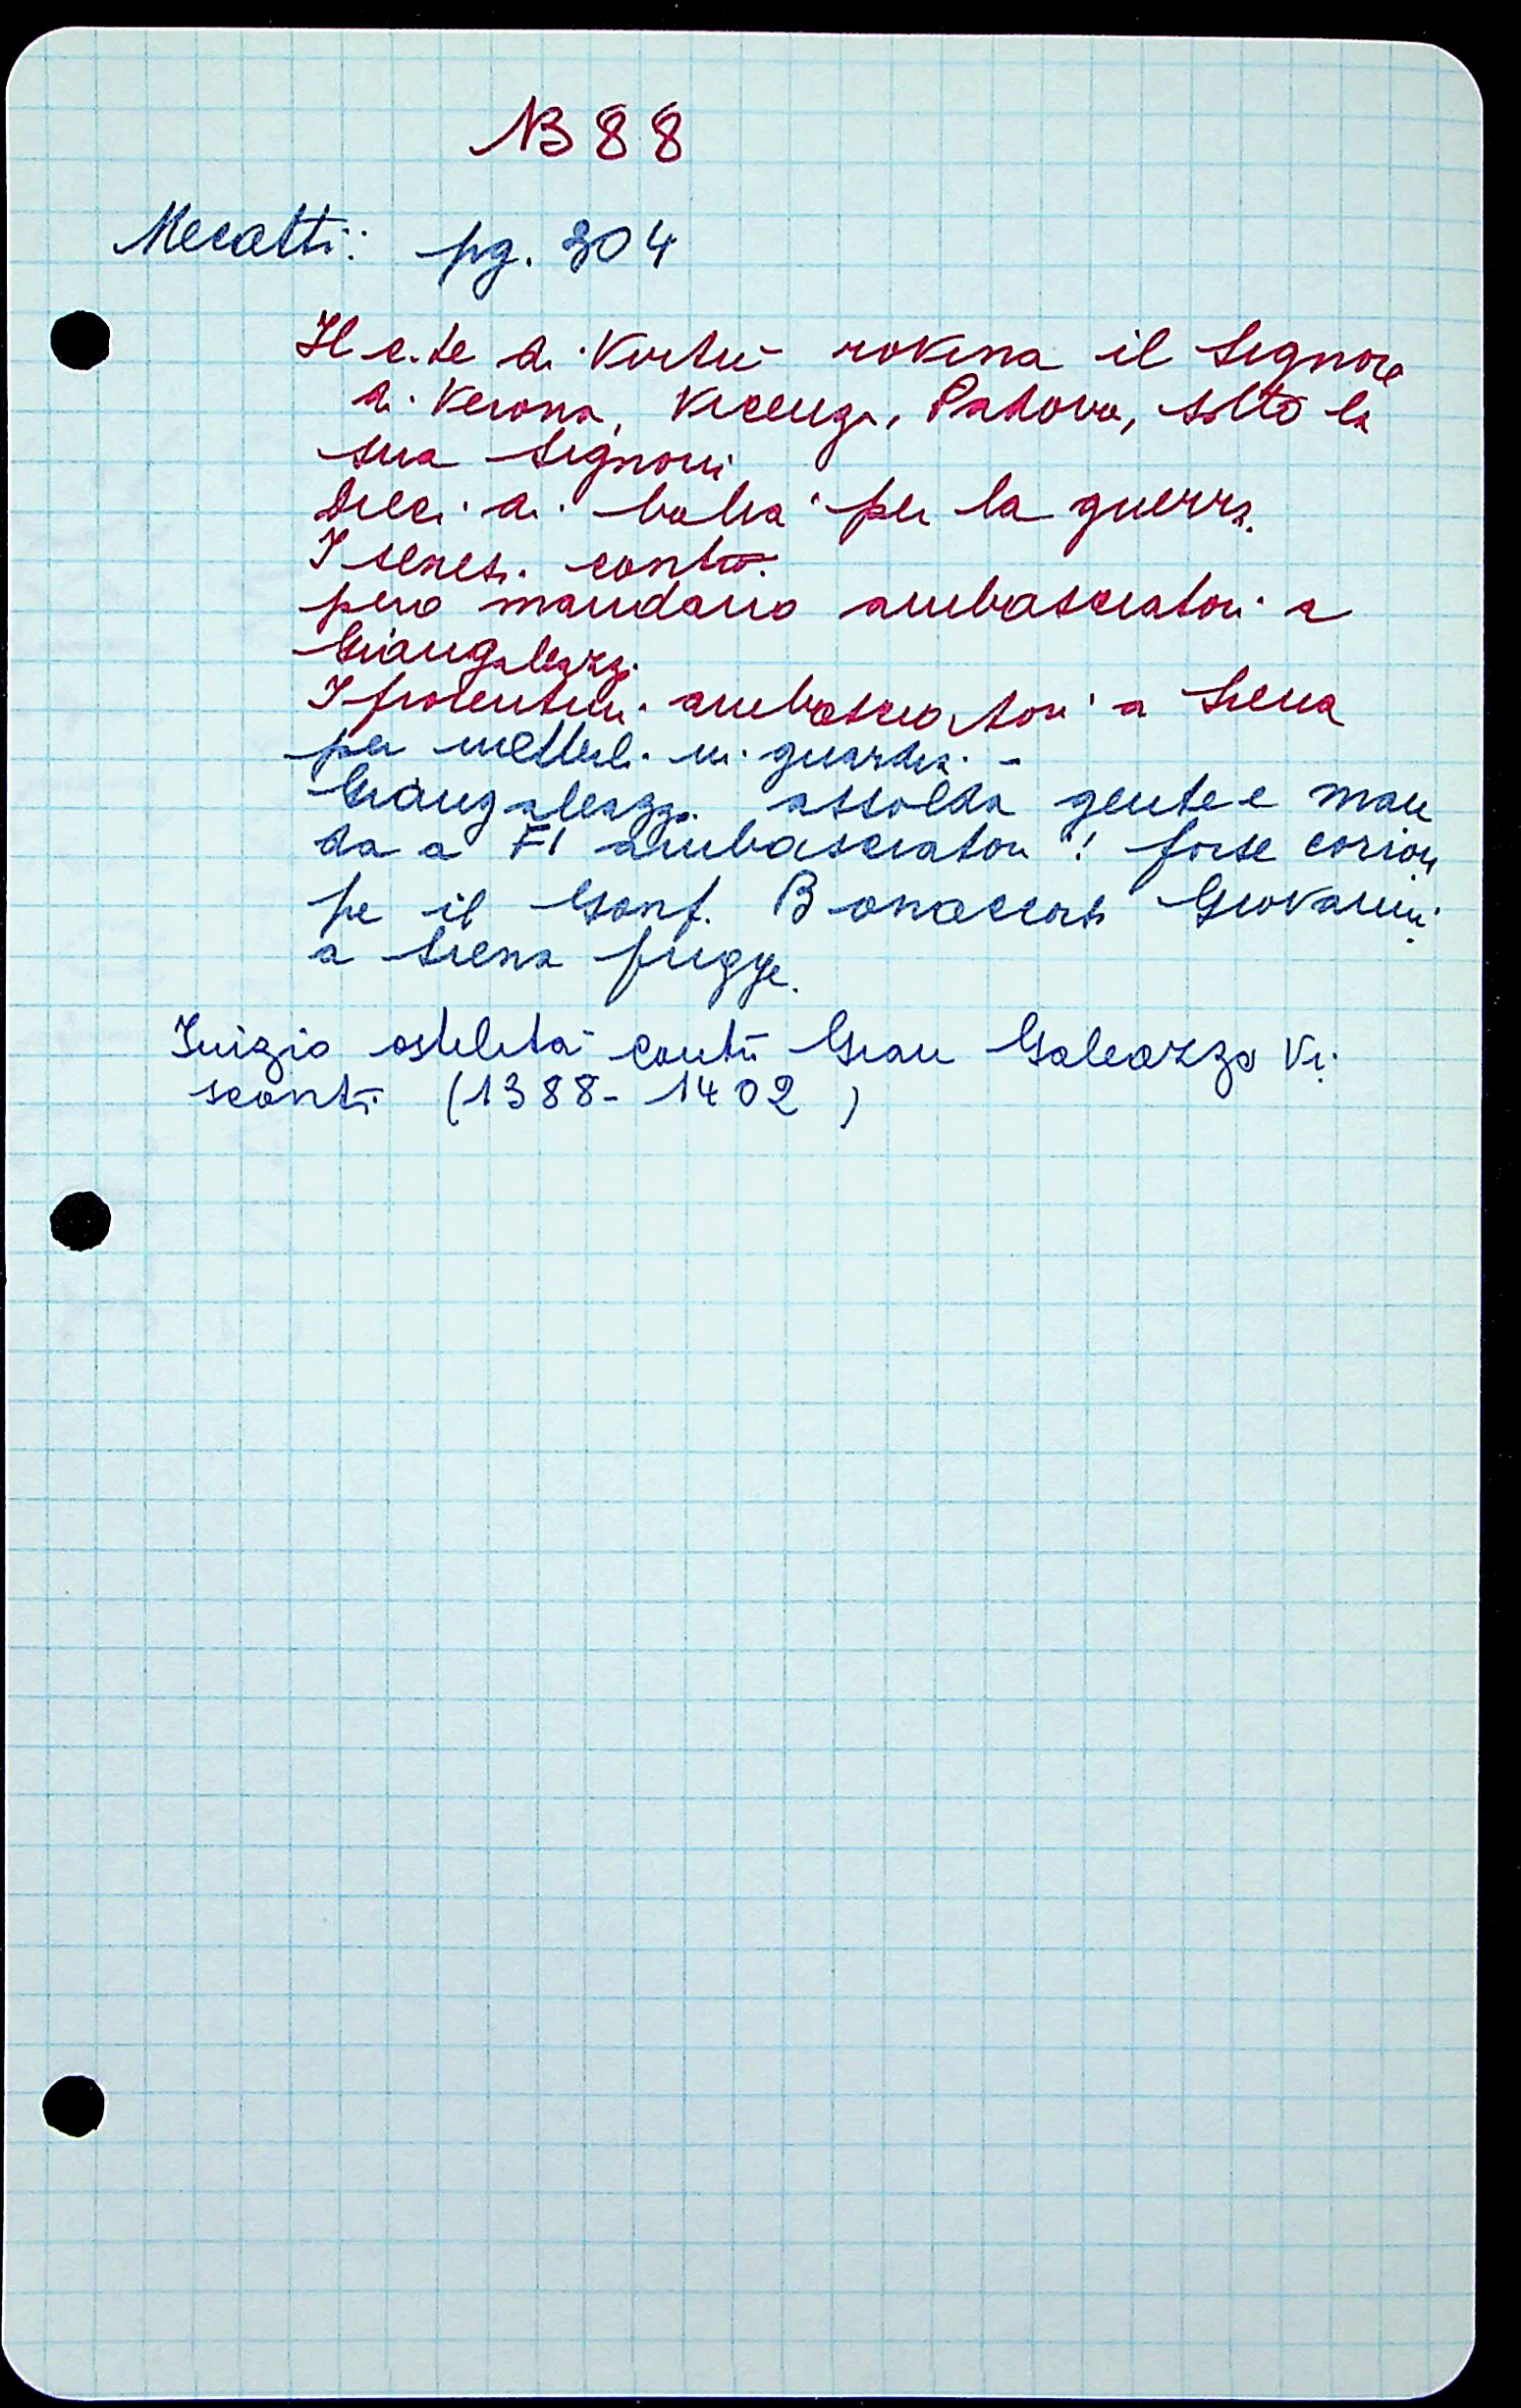 1388
Mecatti: pg. 304
Il c.te di Virtù rovina il Signore
di Verona, Vicenza, Padova, sotto la
sua Signori
Dieci di balia per la guerra.
I senesi contro.
però mandano ambasciatori a
Giangaleazzo
I fiorentini ambasciatori a Siena
per metterli in guardia. -
Giangaleazzo assolda gente e man
da a FI ambasciatori! forse corrom
pe il Gonf. Bonaccorsi Giovanni
a Siena fugge.
Inizio ostilità contro Gian Galeazzo Vi
sconti (1388-1402)